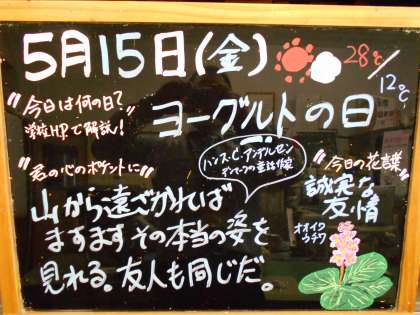 5月15日(金) 28℃/12℃
"今日は何の日?"
当校HPで解説!
ヨーグルトの日
"君の心のポケットに"
ハンス・C・アンデルセン
デンマークの童話作家
山から遠ざかれば
ますますその本当の姿を
見れる。友人も同じだ。
"今日の花言葉"
誠実な
友情
オオイワ
ウチワ